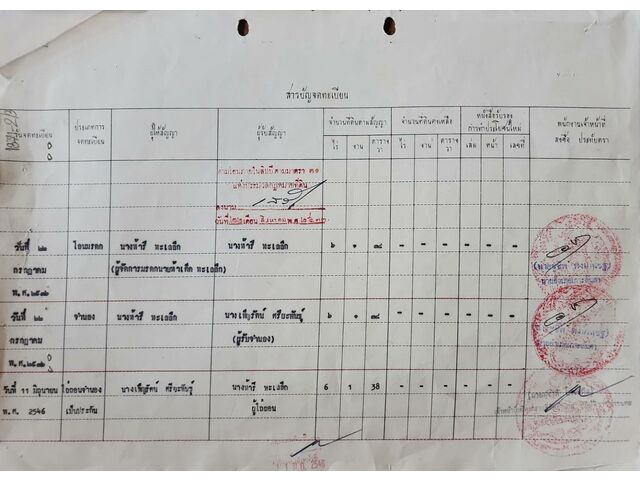 สารบัญจดทะเบียน
วันจดทะเบียน
ประเภทการ
จดทะเบียน
ผู้ให้สัญญา
ผู้รับสัญญา
จำนวนที่ดินตามสัญญา
ไร่ งาน ตารางวา
จำนวนที่ดินคงเหลือ
ไร่ งาน ตารางวา
หนังสือรับรอง
การทำประโยชน์ใหม่
เล่ม หน้า เลขที่
พนักงานเจ้าหน้าที่
ลงชื่อ ประทับตรา
ห้ามโอนภายในสิบปี ตามมาตรา ๓๑
แห่งประมวลกฎหมายที่ดิน
ลงนาม
วันที่ เดือน สิงหาคม พ.ศ.
วันที่ ๒๒ โอนมรดก นางห้ารี หะเลอีก นางห้ารี หะเลอีก ๖ ๑ ๓๘ - - - - - -
กรกฎาคม (ผู้จัดการมรดกนายห้าเต็ด หะเลอีก)
พ.ศ.๒๕๓๗
วันที่ ๒๒ จำนอง นางห้ารี หะเลอีก นางเพ็ญรัตน์ ศรียะพันธุ์ ๖ ๑ ๓๘ - - - - - -
กรกฎาคม (ผู้รับจำนอง)
พ.ศ.๒๕๓๗
วันที่ 11 มิถุนายน ไถ่ถอนจำนอง นางเพ็ญรัตน์ ศรียะพันธุ์ นางห้ารี หะเลอีก 6 1 38 - - - - - -
พ.ศ. 2546 เป็นประกัน ผู้ไถ่ถอน
2546